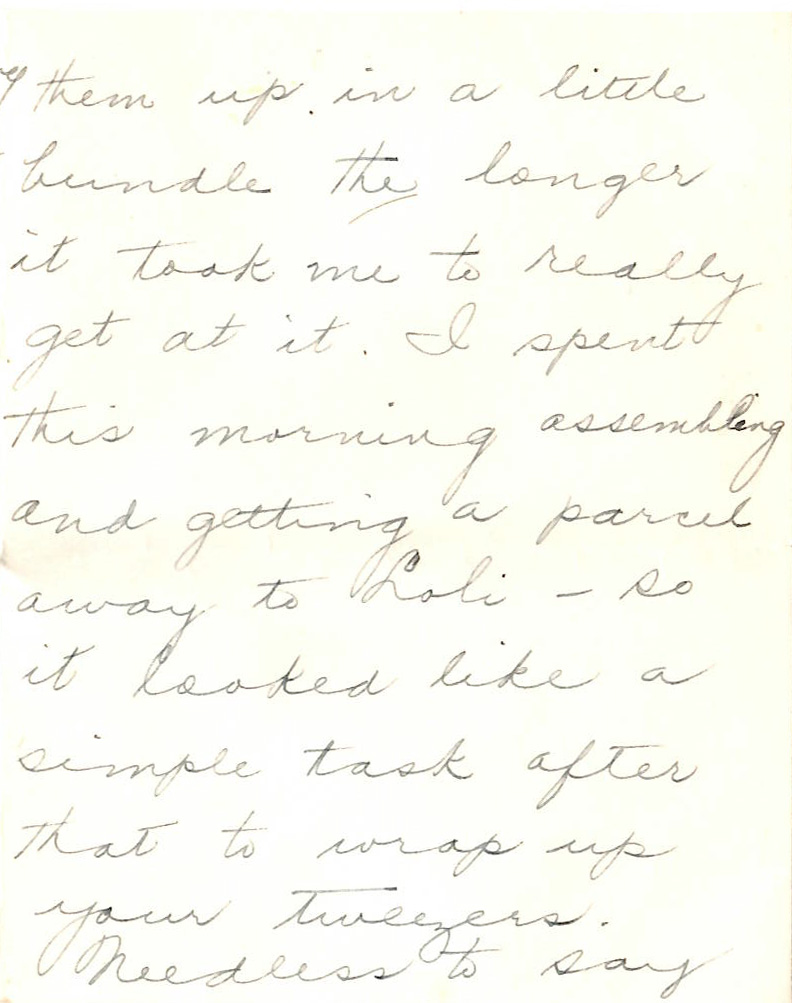 them up in a little
bundle the longer
it took me to really
get at it. I spent
this morning assembling
and getting a parcel
away to Loli - so
it looked like a
simple task after
that to wrap up
your tweezers.
Needless to say